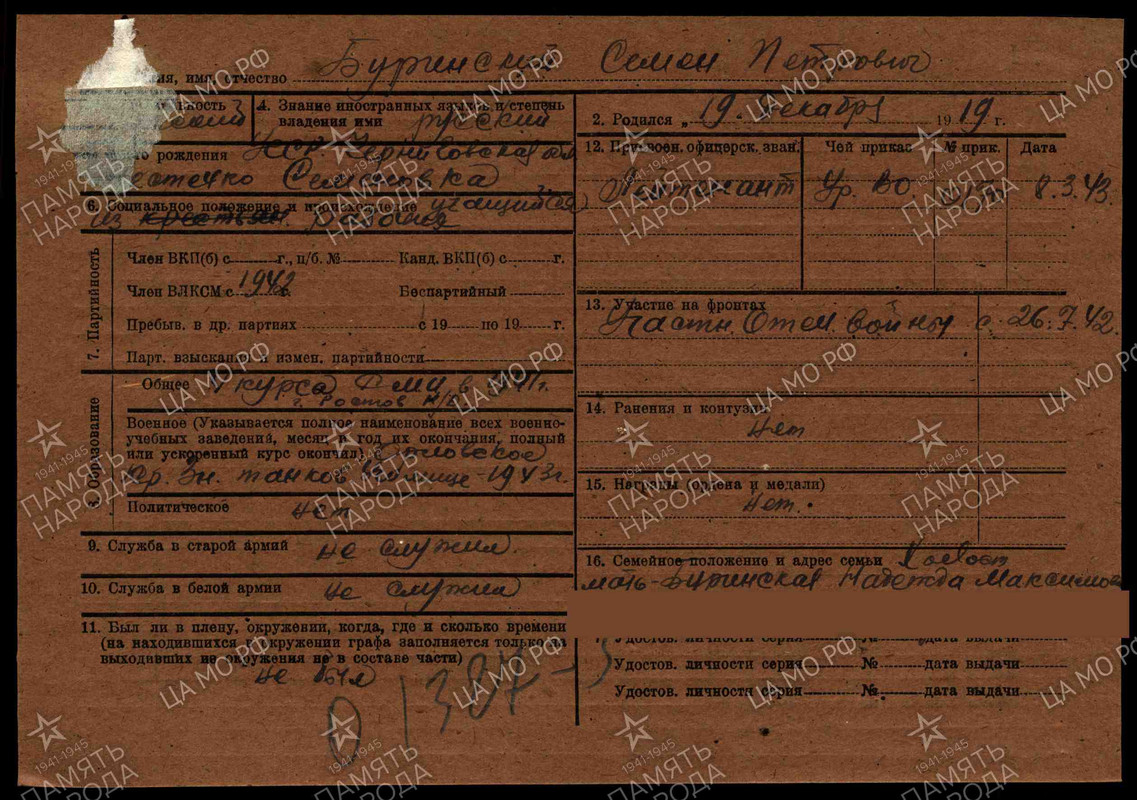 ия, имя, отчество Бугинский Семен Петрович
ность 3
4. Знание иностранных языков и степень
владения ими русский
рождения УССР. Черниговская обл
местечко Семеновка
6. Социальное положение и происхождение учащийся
из крестьян. рабочия
7. Партийность
Член ВКП(б) с г., п/б. № Канд. ВКП(б) с г.
Член ВЛКСМ с 1942 г. Беспартийный
Пребыв. в др. партиях с 19 по 19 г.
Парт. взыскания и измен. партийности
8. Образование
Общее курса в 1941 г.
г. Ростов н/
Военное (Указывается полное наименование всех военно-
учебных заведений, месяц и год их окончания, полный
или ускоренный курс окончил)
танков училище - 1943 г.
Политическое нет
9. Служба в старой армии не служил.
10. Служба в белой армии не служил
11. Был ли в плену, окружении, когда, где и сколько времени
(на находившихся в окружении графа заполняется только на
выходивших из окружения не в составе части)
не был
0 1387-3
2. Родился „19. декабря 1919 г.
12. Присвоен. офицерск. зван. Чей приказ № прик. Дата
Лейтенант Ур. ВО. 8.3.43.
13. Участие на фронтах
Участн. Отеч. войны с 26.7.42.
14. Ранения и контузии
нет
15. Награды (ордена и медали)
нет.
16. Семейное положение и адрес семьи Холост
мать - Бугинская Надежда Максимов
Удостов. личности серия № дата выдачи
Удостов. личности серия № дата выдачи
Удостов. личности серия № дата выдачи
ЦА МО РФ
1941-1945
ПАМЯТЬ
НАРОДА